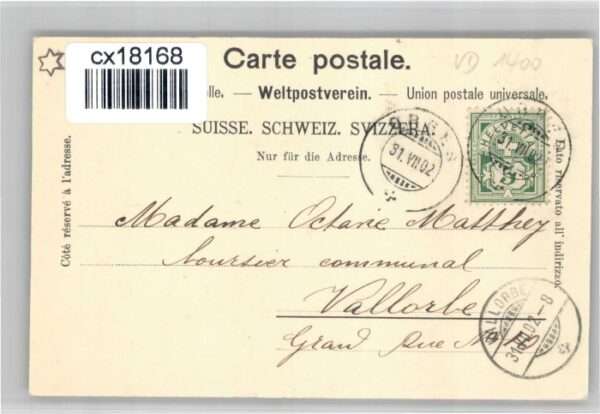 cx18168
VD 1400
Carte postale.
Weltpostverein. — Union postale universale.
SUISSE. SCHWEIZ. SVIZZERA.
Nur für die Adresse.
Côté réservé à l'adresse.
Lato riservato all' indirizzo.
ORBE
31.VII.02
31.VII.02
Madame Octave Matthey
boursier communal
Vallorbe
Grand Rue
VALLORBE